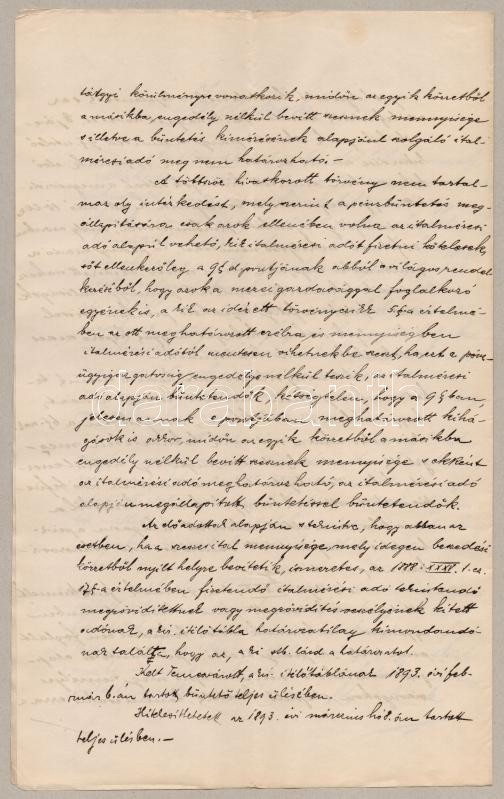 tárgyi körülményre vonatkozik, midőn az egyik községből
a másikba, engedély nélkül bevitt szesznek mennyisége
s illetve a büntetés kimérésének alapjául szolgáló ital-
mérési adó meg nem határozható. —
A többször hivatkozott törvény nem tartal-
maz oly intézkedést, mely szerint a pénzbüntetés meg-
állapítására csak azok ellenében volna az italmérési
adó alapul vehető, kik italmérési adót fizetni kötelesek,
sőt ellenkezőleg a 9§ d pontjának abból a világos rendel
kezéséből, hogy azok a mezőgazdasággal foglalkozó
egyének is, a kik az idézett törvénycikk 5.§-a értelmé-
ben az ott meghatározott célra és mennyiségben
italmérési adótól mentesen vihetnek be szeszt, ha ezt a pénz-
ügyigazgatóság engedélye nélkül teszik, az italmérési
adó alapján büntetendők kétségtelen, hogy a 9§ban,
jelesen annak e pontjában meghatározott kihá-
gások is akkor, midőn az egyik községből a másikba
engedély nélkül bevitt szesznek mennyisége s ekként
az italmérési adó meghatározható, az italmérési adó
alapján megállapított büntetéssel büntetendők.
Az előadottak alapján tekintve, hogy abban az
esetben, ha a szeszes ital mennyisége, mely idegen beszedési
községből nyilt helyre bevitetik, ismeretes, az 1888: XXXV. t. cz.
§-a értelmében fizetendő italmérési adó tekintendő
megrövidítettnek vagy megrövidítés veszélyének kitett
adónak, a kir. itélőtábla határozatilag kimondandó-
nak találta, hogy az, a ki stb. lásd a határozatot.
Kelt Temesvárott, a kir. itélőtáblának 1893. évi feb-
ruár 6.-án tartott büntető teljes ülésében.
Hitelesíttetett az 1893. évi márczius hó 8.-án tartott
teljes ülésben. —
darabanth